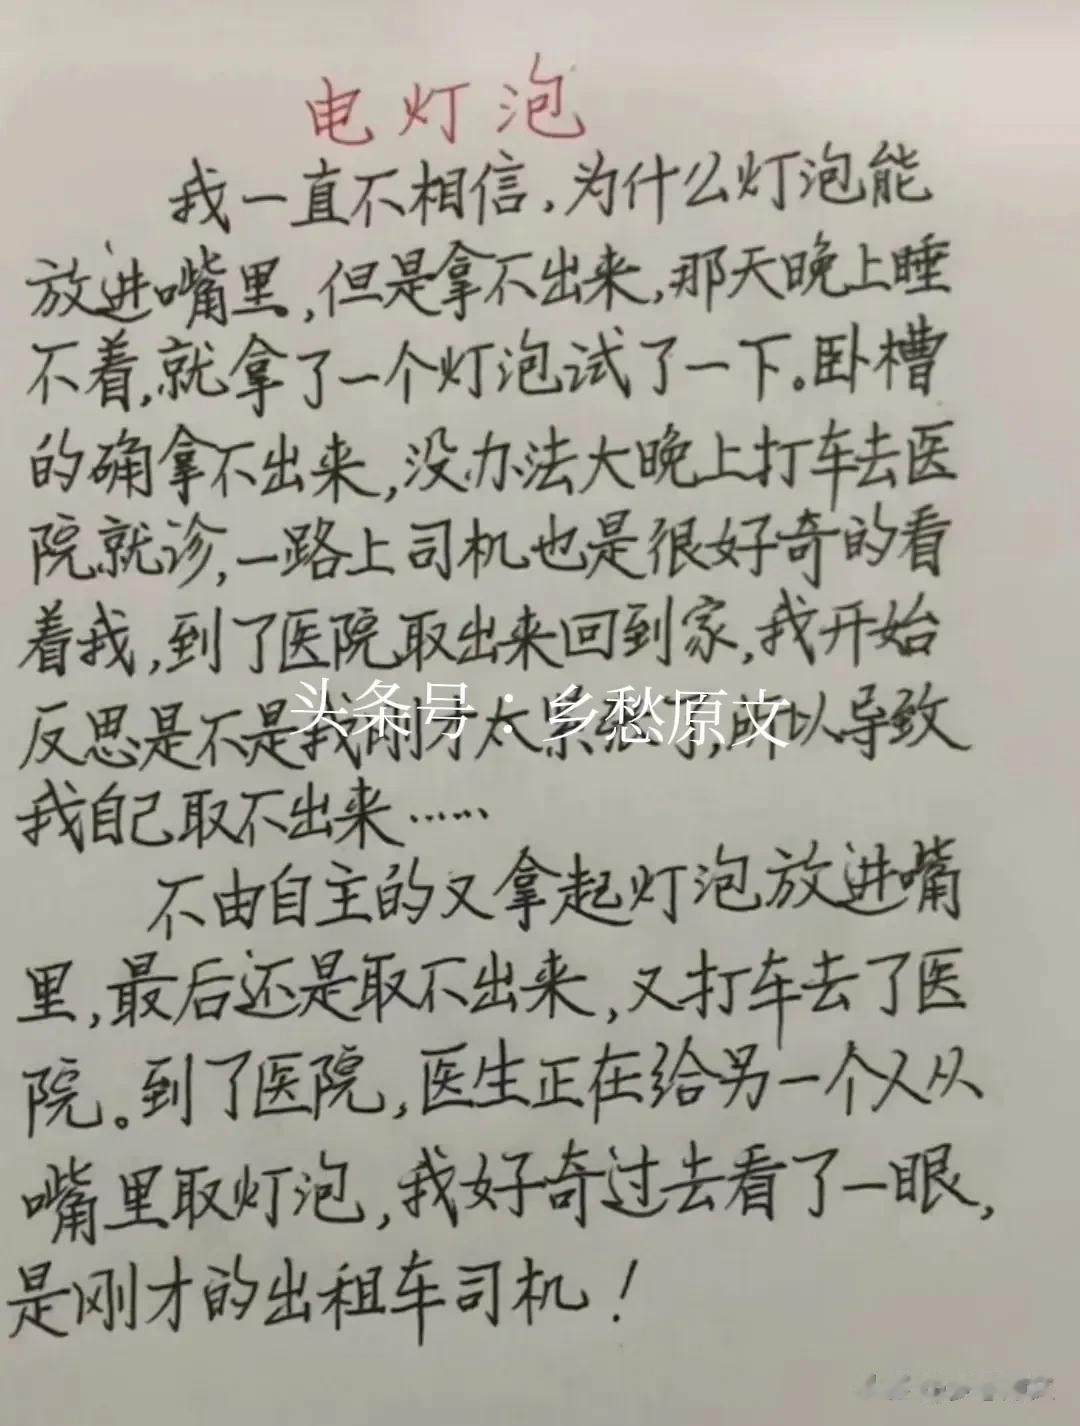 电灯泡
我一直不相信,为什么灯泡能
放进嘴里,但是拿不出来,那天晚上睡
不着,就拿了一个灯泡试了一下。卧槽
的确拿不出来,没办法大晚上打车去医
院就诊,一路上司机也是很好奇的看
着我,到了医院取出来回到家,我开始
反思是不是我刚才太紧张了,所以导致
头条号：乡愁原文
我自己取不出来……
不由自主的又拿起灯泡放进嘴
里,最后还是取不出来,又打车去了医
院。到了医院,医生正在给另一个人从
嘴里取灯泡,我好奇过去看了一眼,
是刚才的出租车司机!